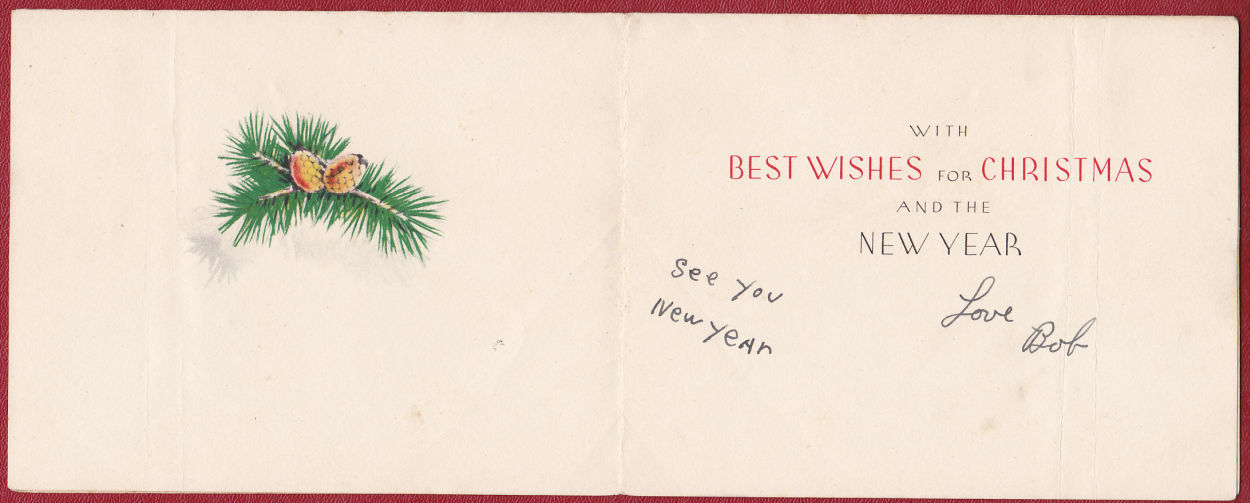 WITH
BEST WISHES FOR CHRISTMAS
AND THE
NEW YEAR
See You
New Year
Love
Bob